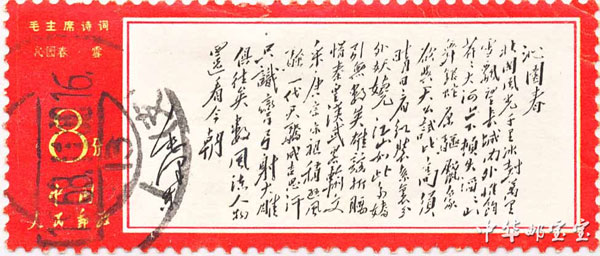 毛主席诗词
沁园春 雪
8分
中国
人民邮政
沁园春
北国风光千里冰封万里
雪飘望长城内外惟馀莽
莽大河上下顿失滔滔山
舞银蛇原驰腊象
欲与天公试比高须
晴日看红装素裹分
外妖娆江山如此多娇
引无数英雄竞折腰
惜秦皇汉武略输文
采唐宗宋祖稍逊风
骚一代天骄成吉思汗
只识弯弓射大雕
俱往矣数风流人物
还看今朝
毛泽东
16
13